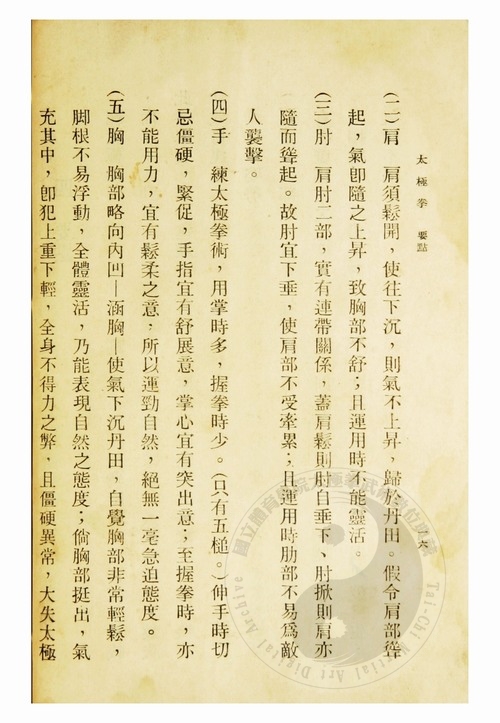 太極拳　要點
六
(二) 肩　肩須鬆開，使往下沉，則氣不上昇，歸於丹田。假令肩部聳
起，氣卽隨之上昇，致胸部不舒；且運用時不能靈活。
(三) 肘　肩肘二部，實有連帶關係，蓋肩鬆則肘自垂下、肘掀則肩亦
隨而聳起。故肘宜下垂，使肩部不受牽累；且運用時肋部不易爲敵
人襲擊。
(四) 手　練太極拳術，用掌時多，握拳時少。(只有五槌。)伸手時切
忌僵硬，緊促，手指宜有舒展意，掌心宜有突出意；至握拳時，亦
不能用力，宜有鬆柔之意，所以運勁自然，絕無一毫急迫態度。
(五) 胸　胸部略向內凹—涵胸—使氣下沉丹田，自覺胸部非常輕鬆，
脚根不易浮動，全體靈活，乃能表現自然之態度；倘胸部挺出，氣
充其中，卽犯上重下輕，全身不得力之弊，且僵硬異常，大失太極
Tai-Chi Martial Art Digital Archive